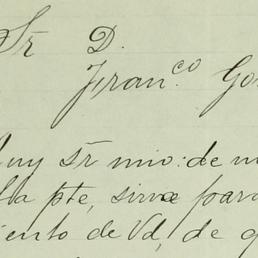 Sr D.
Franco Go
uy Sr mio: de m
la pte, sirve para
iento de Vd, de q